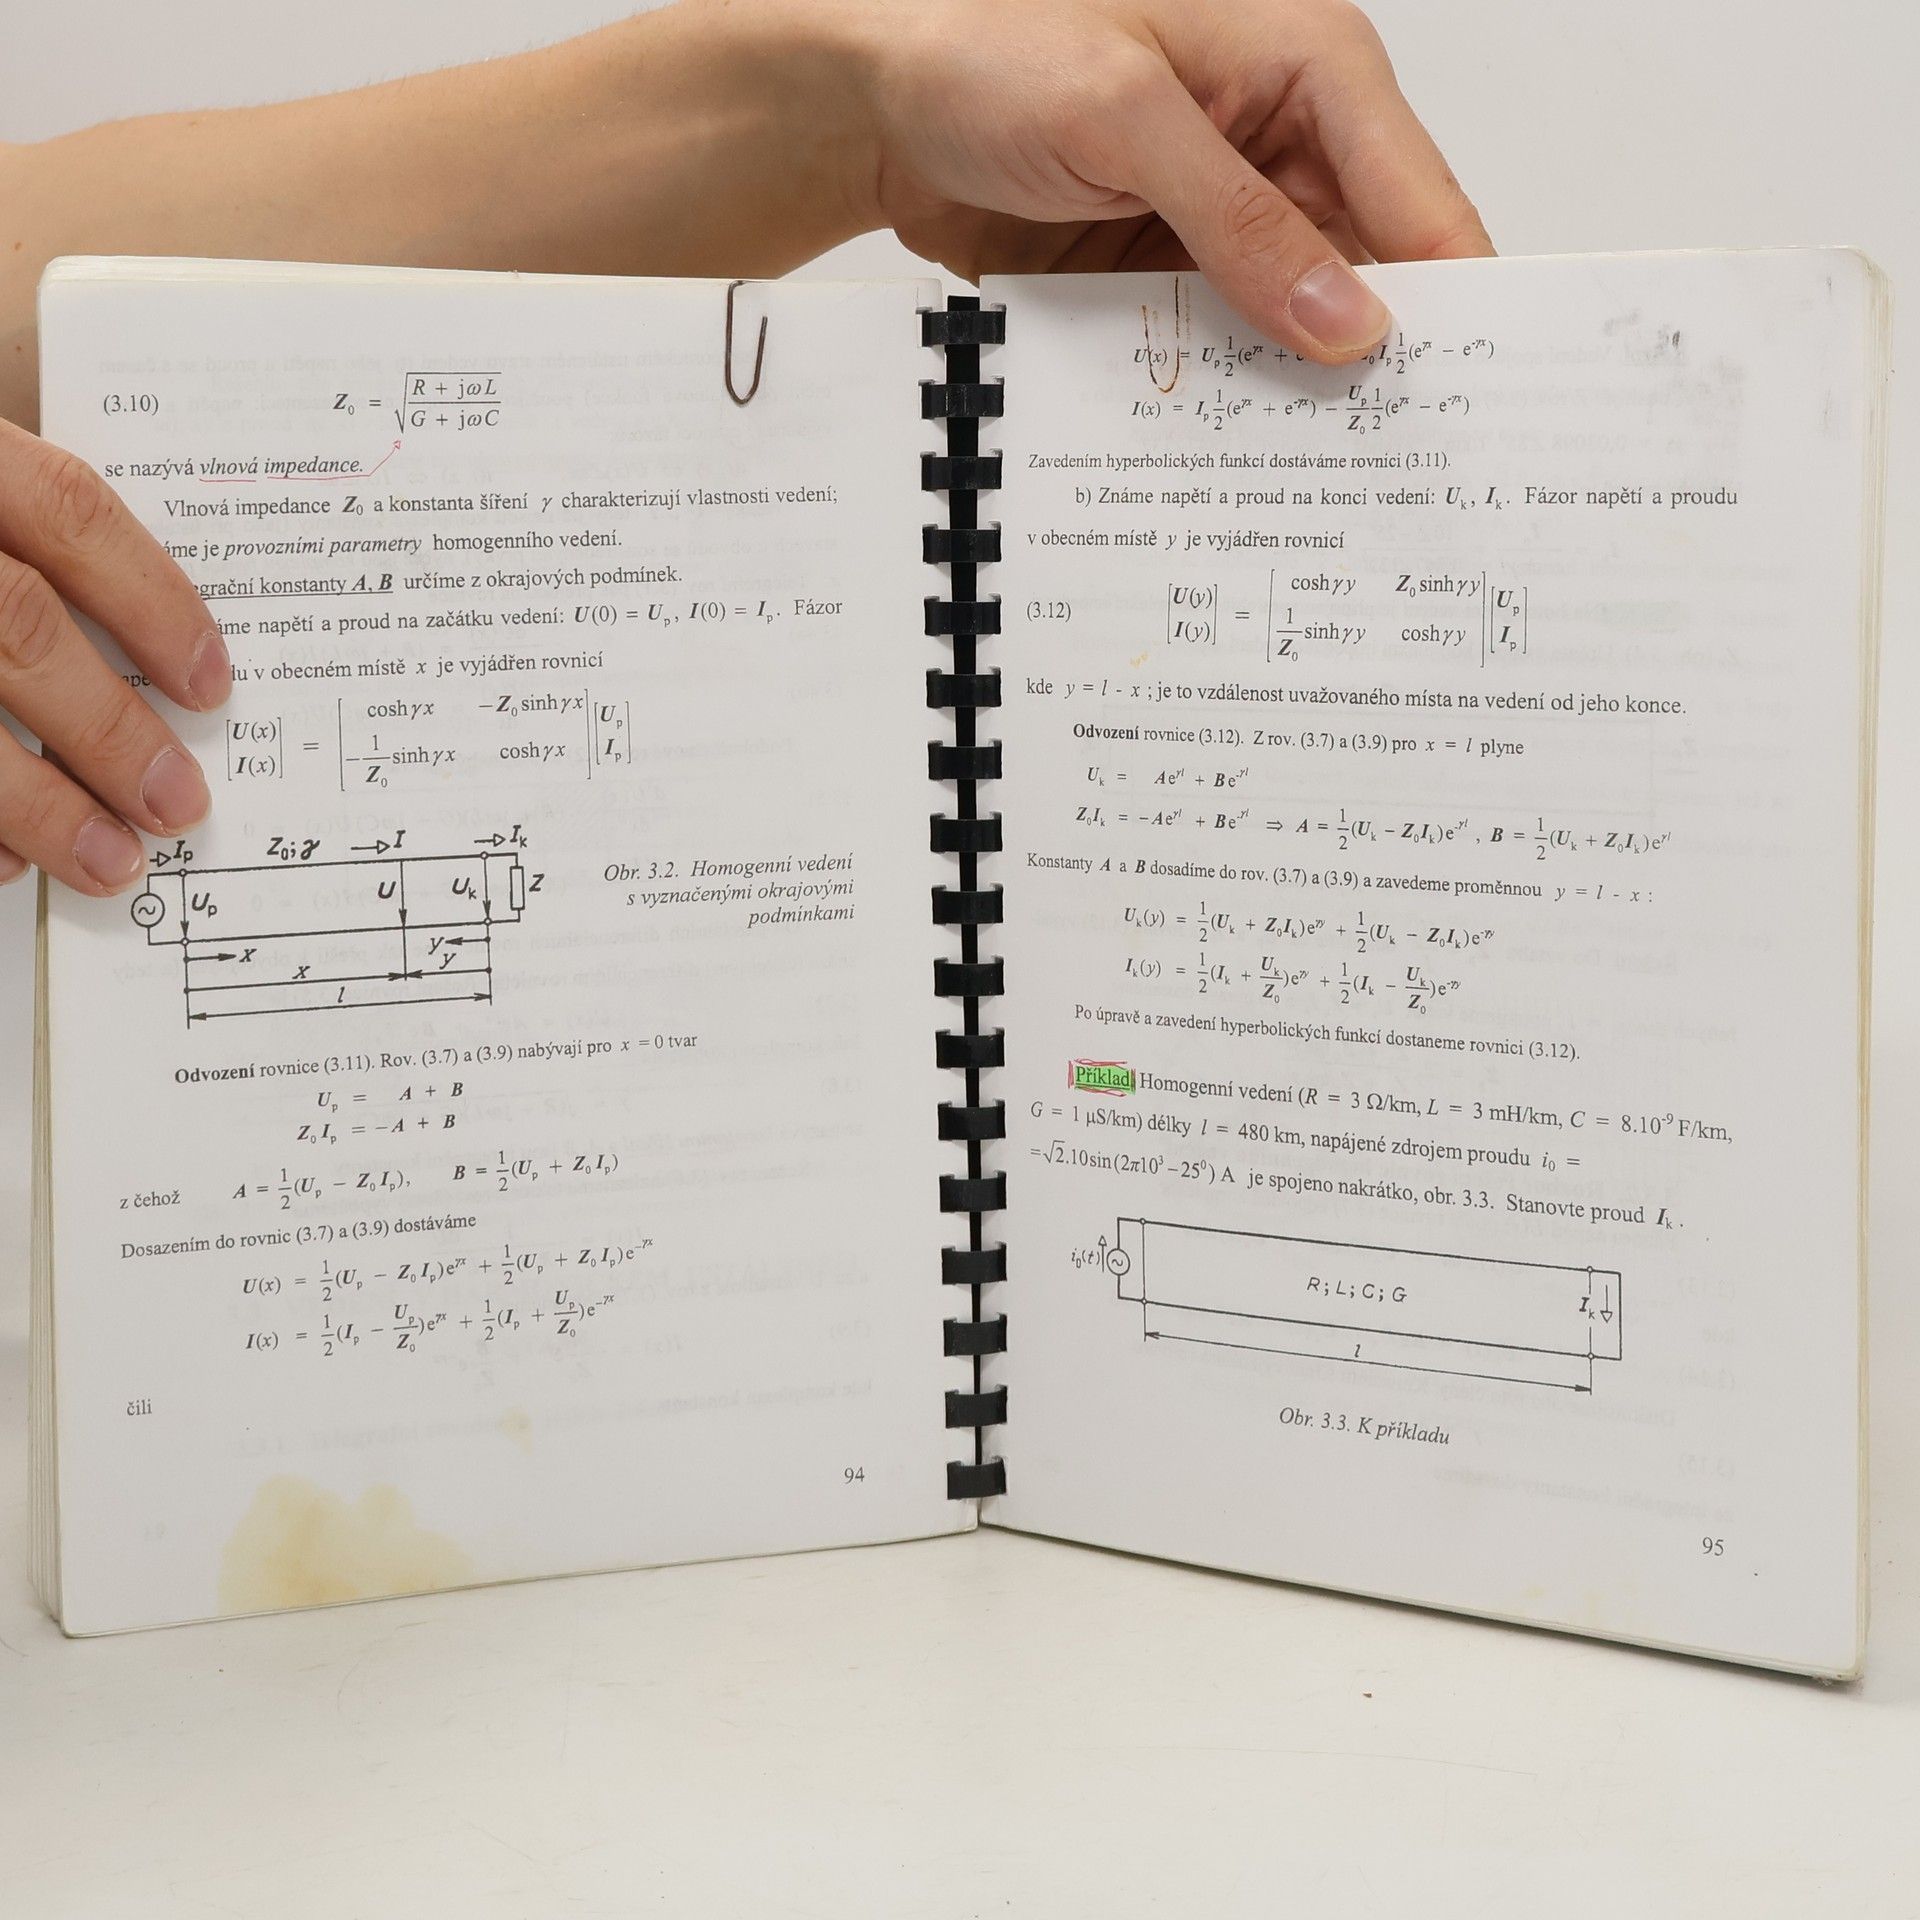 (3.10) Z₀ = √((R + jωL)/(G + jωC))
se nazývá vlnová impedance.
Vlnová impedance Z₀ a konstanta šíření γ charakterizují vlastnosti vedení;
je provozními parametry homogenního vedení.
konstanty A, B určíme z okrajových podmínek.
napětí a proud na začátku vedení: U(0) = Uₚ, I(0) = Iₚ. Fázor
v obecném místě x je vyjádřen rovnicí
[U(x)] = [cosh γx −Z₀ sinh γx] [Uₚ]
[I(x)] [−1/Z₀ sinh γx cosh γx] [Iₚ]
Iₚ Z₀; γ I Iₖ
Uₚ U Uₖ Z
x y
x y
l
Obr. 3.2. Homogenní vedení
s vyznačenými okrajovými
podmínkami
Odvození rovnice (3.11). Rov. (3.7) a (3.9) nabývají pro x = 0 tvar
Uₚ = A + B
Z₀Iₚ = −A + B
z čehož A = 1/2(Uₚ − Z₀Iₚ), B = 1/2(Uₚ + Z₀Iₚ)
Dosazením do rovnic (3.7) a (3.9) dostáváme
U(x) = 1/2(Uₚ − Z₀Iₚ)e^γx + 1/2(Uₚ + Z₀Iₚ)e^−γx
I(x) = 1/2(Iₚ − Uₚ/Z₀)e^γx + 1/2(Iₚ + Uₚ/Z₀)e^−γx
čili
94
U(x) = Uₚ 1/2(e^γx + Iₚ 1/2(e^γx − e^-γx)
I(x) = Iₚ 1/2(e^γx + e^-γx) − Uₚ/Z₀ 1/2(e^γx − e^-γx)
Zavedením hyperbolických funkcí dostáváme rovnici (3.11).
b) Známe napětí a proud na konci vedení: Uₖ, Iₖ. Fázor napětí a proudu
v obecném místě y je vyjádřen rovnicí
(3.12) [U(y)] = [cosh γy Z₀ sinh γy] [Uₚ]
[I(y)] [1/Z₀ sinh γy cosh γy] [Iₚ]
kde y = l - x ; je to vzdálenost uvažovaného místa na vedení od jeho konce.
Odvození rovnice (3.12). Z rov. (3.7) a (3.9) pro x = l plyne
Uₖ = Ae^γl + Be^-γl
Z₀Iₖ = −Ae^γl + Be^-γl ⇒ A = 1/2(Uₖ − Z₀Iₖ)e^-γl , B = 1/2(Uₖ + Z₀Iₖ)e^γl
Konstanty A a B dosadíme do rov. (3.7) a (3.9) a zavedeme proměnnou y = l - x :
Uₖ(y) = 1/2(Uₖ + Z₀Iₖ)e^γy + 1/2(Uₖ − Z₀Iₖ)e^-γy
Iₖ(y) = 1/2(Iₖ + Uₖ/Z₀)e^γy + 1/2(Iₖ − Uₖ/Z₀)e^-γy
Po úpravě a zavedení hyperbolických funkcí dostaneme rovnici (3.12).
Příklad Homogenní vedení (R = 3 Ω/km, L = 3 mH/km, C = 8.10⁻⁹ F/km,
G = 1 μS/km) délky l = 480 km, napájené zdrojem proudu i₀ =
=√2.10sin(2π10³−25⁰) A je spojeno nakrátko, obr. 3.3. Stanovte proud Iₖ .
i₀(t) R; L; C; G Iₖ
l
Obr. 3.3. K příkladu
95